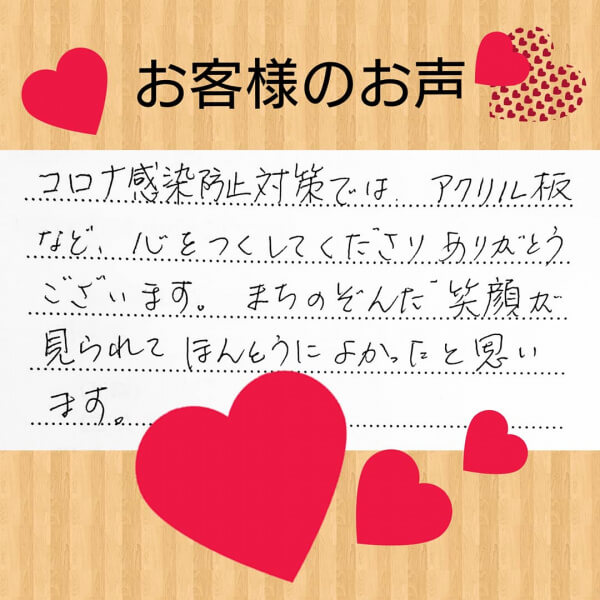 お客様のお声
コロナ感染防止対策では、アクリル板
など、心をつくしてくださりありがとう
ございます。まちのぞんだ笑顔が
見られてほんとうによかったと思い
ます。